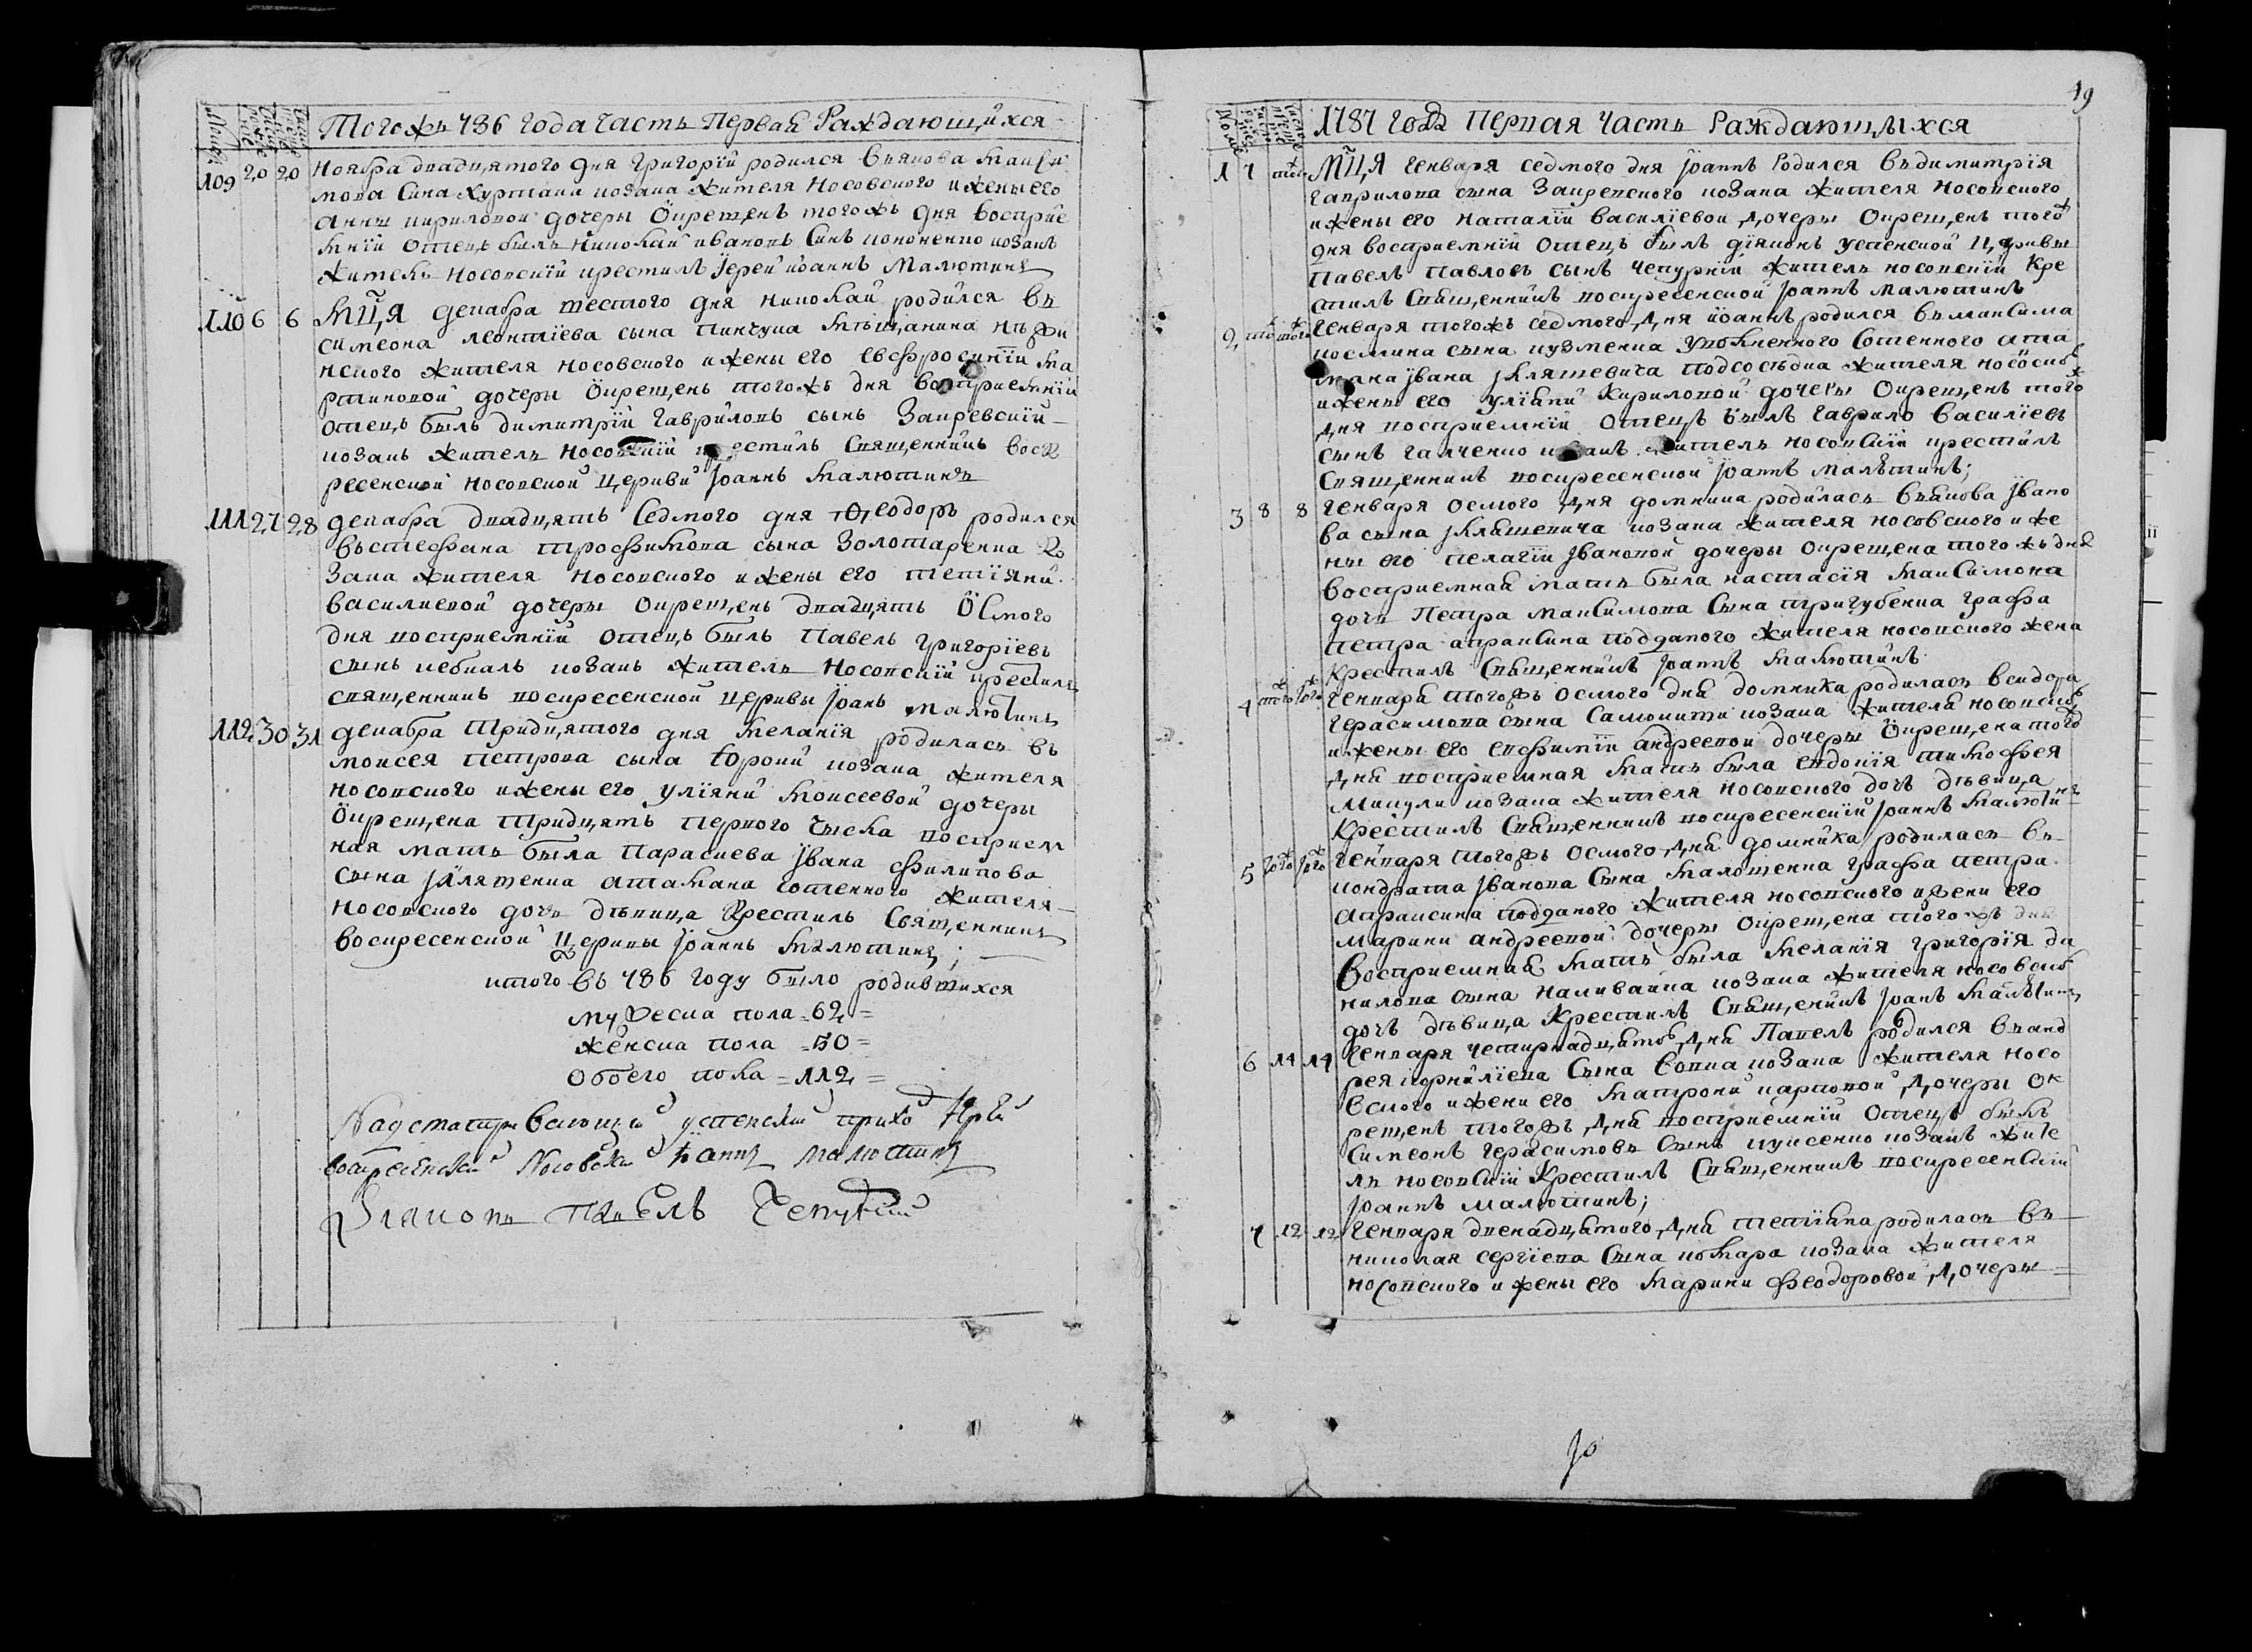 Тогожъ 786 года часть Первая Раждающихся
109 20 20 Ноября двадцятого дня григорїй родился въякова макси
мова сина Хурмаки козака жителя Носовского иженыего
Анны кириловой дочеры Окрещенъ тогожъ дня восприе
мнїй отецъ былъ Николай ивановъ Синъ кононенко козакъ
житель носовскїй крестилъ Їерей їоаннъ Малютинъ
110 6 6 Мц̃а декабра шестого дня николай родился въ
симеона леонтїева сына пинчука мѣщанина нѣжи
нского жителя носовского ижены его евфросинїи ма
ртиновой дочеры Окрещенъ тогожъ дня восприемнїй
отецъ былъ димитрїй гаврїловъ сынъ Закревскїй
козакъ житель носовскїй крестилъ Священникъ воск
ресенской носовской церкви Їоаннъ малютинъ
111 27 28 декабра двадцять Седмого дня Ѳеодоръ родился
въстефана трофимова сына Золотаренка ко
зака жителя носовского ижены его тетїяни
василиевой дочеры окрещенъ двадцять Осмого
дня восприемнїй отецъ былъ Павелъ григорїевъ
сынъ кебкалъ козакъ житель Носовскїй крестилъ
священникъ воскресенской церквы Їоанъ малютинъ
112 30 31 декабра Тридцятого дня меланїя родилась въ
моисея петрова сына козака жителя
носовского ижены его улїяни Моисеевой дочеры
Окрещена тридцять первого числа восприем
ная мать была Параскева Ївана филипова
сына Їляшенка атамана сотенного жителя
носовского дочь дѣвица Крестилъ Священникъ
воскресенской Церквы Їоаннъ малютинъ;
итого въ 786 году было родившихся
мужеска пола = 62 =
женска пола = 50 =
Обоего пола = 112 =
Надсматривающий успенский приход Їерей
воскресенский Носовский Їоаннъ малютинъ
Диаконъ Павелъ Чепурний
19
1787 года Первая Часть Раждающихся
1 7 тогож Мц̃а генваря седмого дня Їоаннъ Родился въдимитрїя
гаврилова сына Закревского козака жителя носовского
ижены его наталїи василїевой дочеры Окрещенъ тогож
дня восприемнїй отецъ былъ дїяконъ успенской Церквы
Павелъ Павловъ сынъ чепурнїй житель носовскїй Кре
стилъ Священникъ воскресенской Їоаннъ малютинъ
2 тогож тогож Генваря тогожъ седмого дня їоаннъ родился въмаксима
космина сына кузменка уволненного Сотенного ата
мана Ївана Їляшевича подсосѣдка жителя носовског
ижены его улїяни Кириловой дочеры Окрещенъ тогож
дня восприемнїй отецъ былъ гаврило василїевъ
сынъ галченко козакъ житель носовскїй крестилъ
Священникъ воскресенской Їоаннъ малютинъ;
3 8 8 Генваря осмого дня домника родилась въякова Ївано
ва сына Їляшевича козака жителя носовского иже
ны его пелагїи Ївановой дочеры окрещена тогожъдня
восприемная мать была настасїя максимова
дочь Петра максимова Сына тригубенка графа
петра апраксина подданого жителя носовского жена
Крестилъ Священникъ Їоаннъ малютинъ
4 тогож тогож Генваря тогожъ осмого дня домника родилась всидора
герасимова сына Самокити козака жителя носовског
ижены его евфимїи андреевой дочеры Окрещена тогож
дня восприемная мать была евдокїя тимофея
Микули козака жителя носовского дочь дѣвица
Крестилъ Священникъ воскресенскїй Їоаннъ малютинъ
5 тогож тогож Генваря тогожъ осмого дня домника родилась въ
кондрата Їванова Сына малошенка графа петра
апраксина подданого жителя носовского ижени его
Марини андреевой дочеры окрещена тогожъ дня
Восприемная мать была меланїя григорїя да
нилова сына наливайка козака жителя носовског
дочь дѣвица Крестилъ Священникъ Їоанъ малютинъ
6 14 14 Генваря четирнадцятого дня Павелъ родился въанд
рея корнилїева Сына вовка козака жителя носо
вского ижени его матрони карповой дочери ок
рещенъ тогожъ дня восприемнїй отецъ былъ
Симеонъ герасимовъ Сынъ козакъ жите
ль носовскїй Крестилъ Священникъ воскресенскїй
Їоаннъ малютинъ;
7 12 12 Генваря двенадцятого дня тетїяна родилась въ
николая сергїева Сына козака жителя
носовского ижены его марини феодоровой дочеры